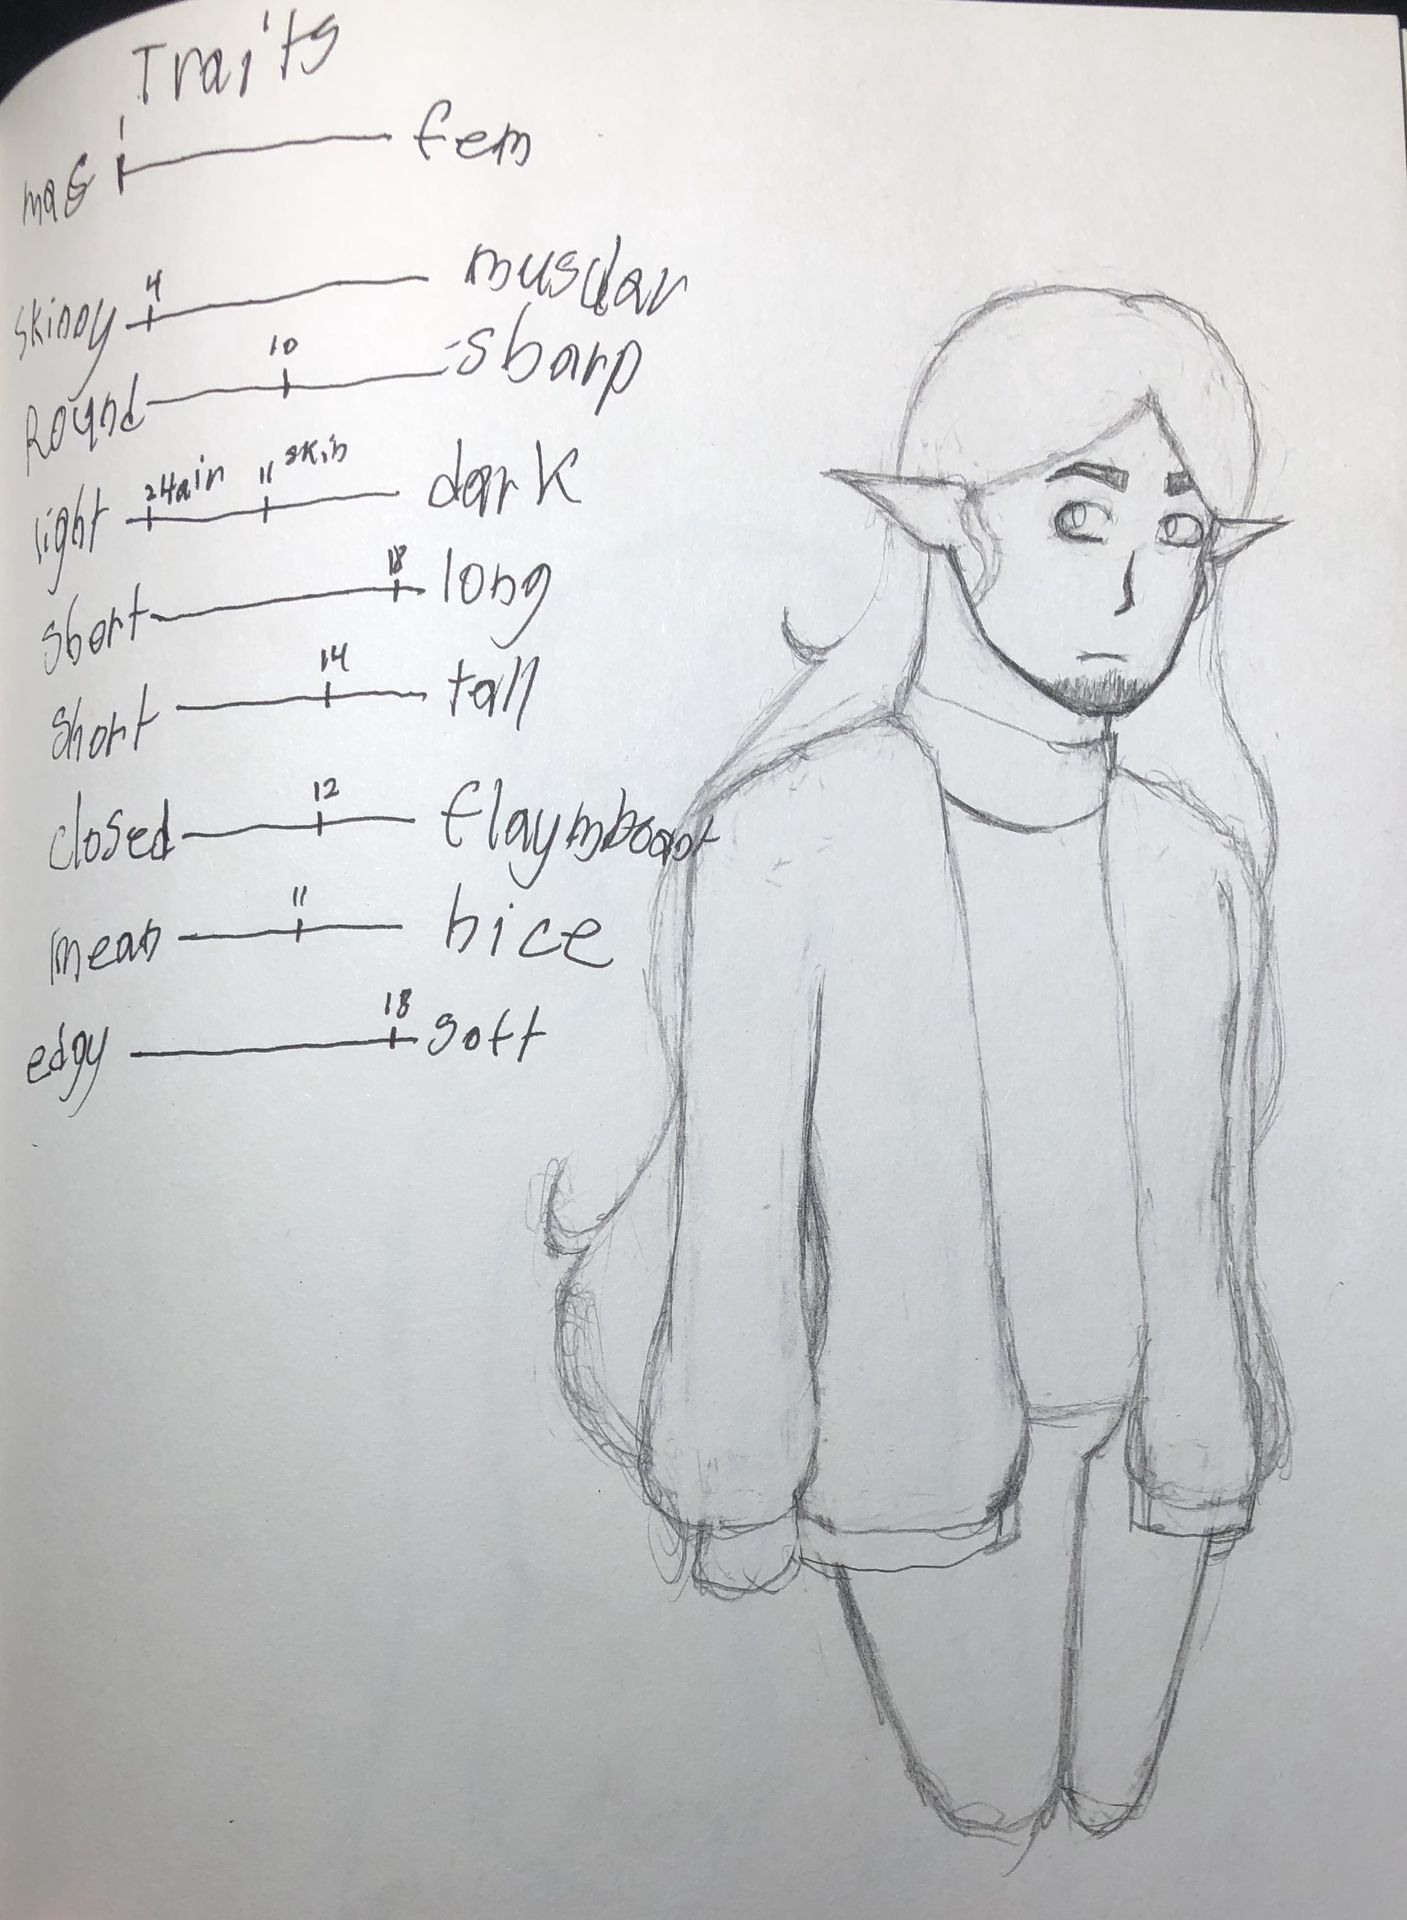 Traits
1
mas fem
4
skinny muscular
10
Round sharp
2 Hair 11 skin
light dark
18
short long
14
short tall
12
closed flaymboant
11
mean nice
18
edgy soft